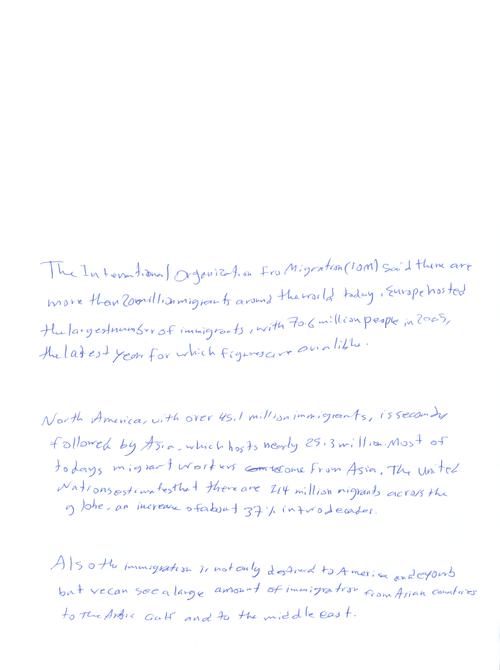 The International Organization fro Migration (IOM) said there are
more than 200 million migrants around the world today. Europe hosted
the largest number of immigrants, with 70.6 million people in 2005,
the latest year for which figures are avialible.
North America, with over 45.1 million immigrants, is secondy
followed by Asia, which hosts nearly 25.3 million. Most of
todays migrant workers come from Asia. The United
Nations estimates that there are 214 million migrants across the
globe, an increase of about 37% in two decades.
Also the immigration is not only destined to America and
but we can see a large amount of immigration from Asian countries
to The Arabic Gulf and to the middle east.